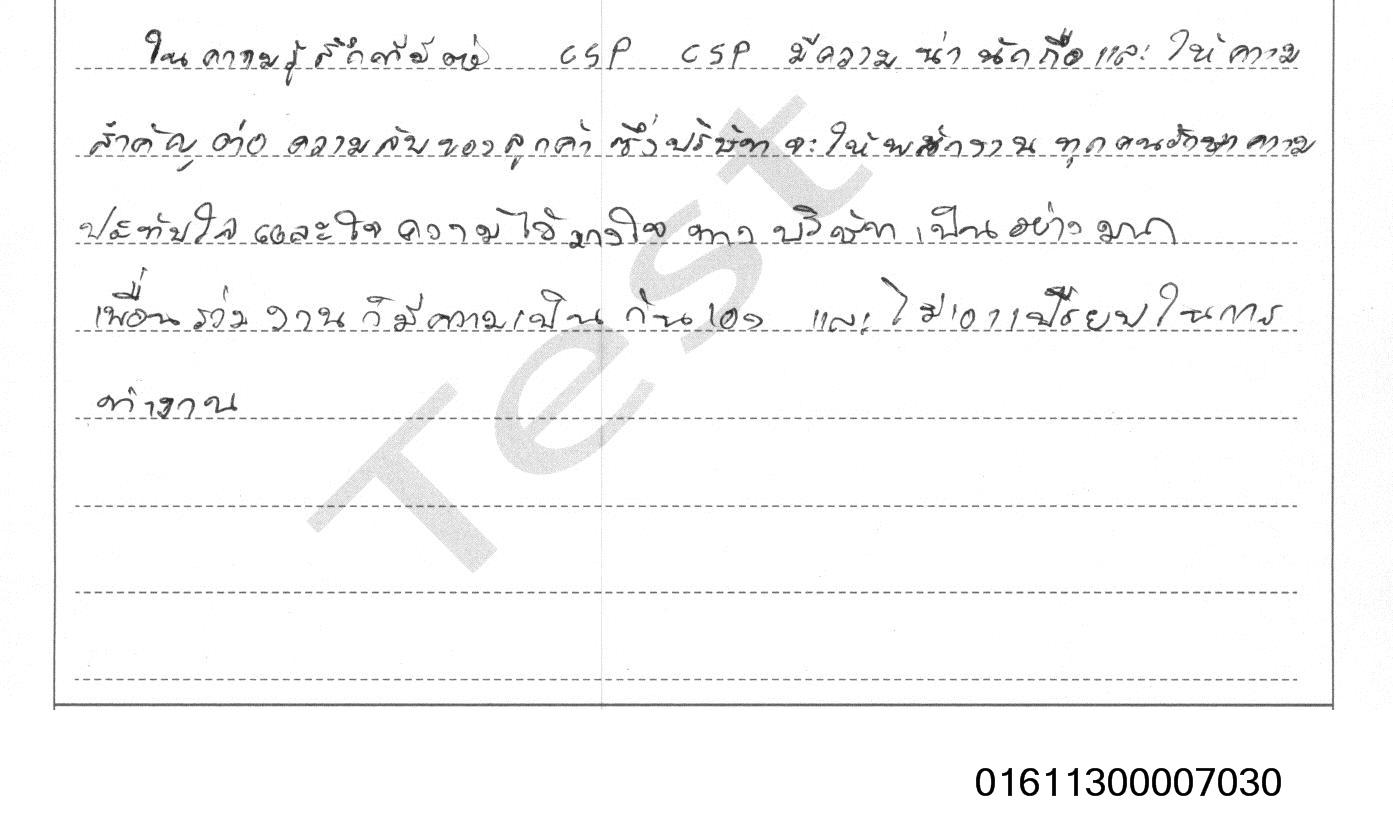 ในความรู้สึกที่มีต่อ CSP CSP มีความน่านับถือและให้ความ
สำคัญต่อความลับของลูกค้า ซึ่งบริษัทจะให้พนักงานทุกคนรักษาความ
ประทับใจและใจความไว้วางใจทางบริษัทเป็นอย่างมาก
เพื่อนร่วมงานก็มีความเป็นกันเอง และไม่เอาเปรียบในการ
ทำงาน
Test
01611300007030